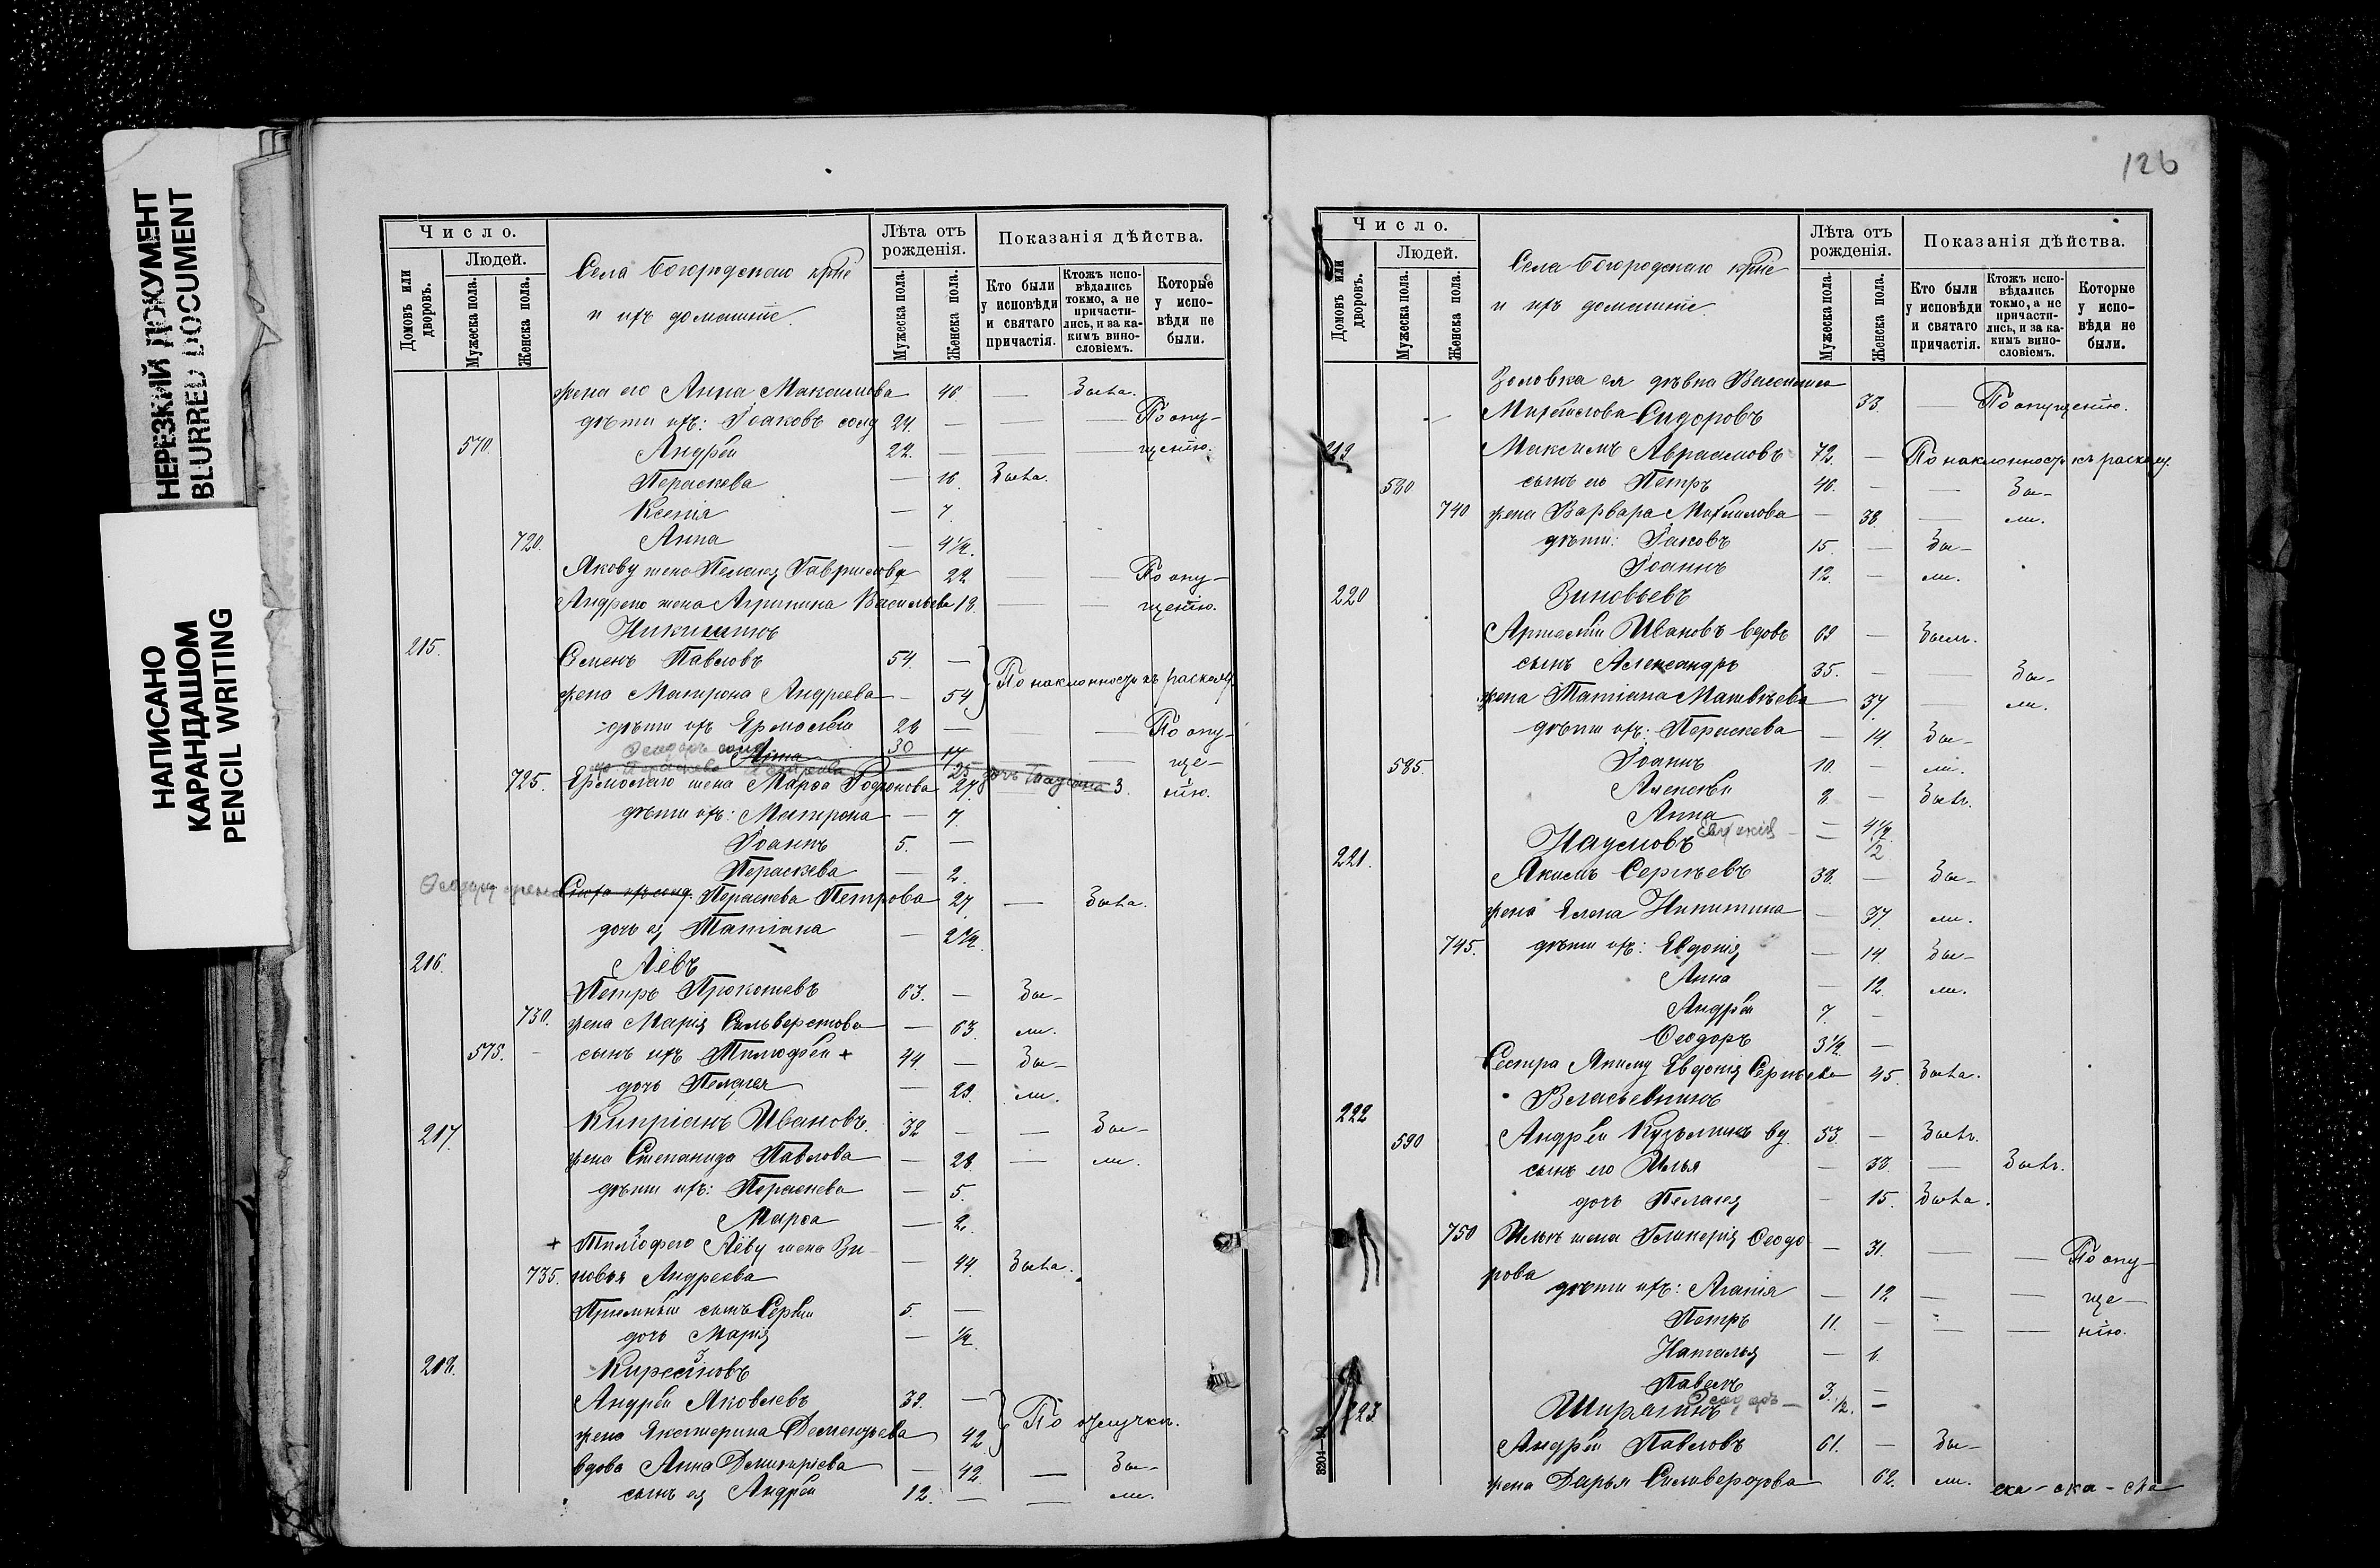 НЕРЕЗКИЙ ДОКУМЕНТ
BLURRED DOCUMENT
НАПИСАНО
КАРАНДАШОМ
PENCIL WRITING
Число.
Людей.
Домовъ или дворовъ.
Мужеска пола.
Женска пола.
Села Богородскаго крне
и ихъ домашніе.
Лѣта отъ рожденія.
Мужеска пола.
Женска пола.
Показанія дѣйства.
Кто были у исповѣди и святаго причастія.
Ктожъ исповѣдались токмо, а не причастились, и за какимъ винословіемъ.
Которые у исповѣди не были.
жена его Анна Максимова 40. — Была.
дѣти ихъ: Іоаковъ солд 24. — — По опу-
570. Андрей 22. — — щенію.
Параскева — 16. Была.
Ксенія — 7.
720. Анна — 4½.
Якову жена Пелагея Гаврилова 22 — — По опу-
Андрею жена Агрипина Васильева 18. — — щенію.
Никишинъ
215. Семенъ Павловъ 54. — По наклонности къ расколу.
жена Матрона Андреева — 54
дѣти ихъ Ермолай 28 — — По опу-
Феодоръ солд 30
Анна 17 — ще-
725. Ермолаю жена Марѳа Родионова 27 нію.
дочь Татіана 3.
дѣти ихъ: Матрона — 7.
Іоаннъ 5. —
Параскева — 2.
Феодору жена Параскева Петрова 27 — Была.
дочь ея Татіана — 2½.
216. Лёвъ
Петръ Прокопіевъ 63. — Бы-
730. жена Марія Сильверстова — 63. ли.
575. — сынъ ихъ Тимофей + 44. — Бы-
дочь Пелагея — 29. ли.
217. Кипріанъ Ивановъ. 32 — — Бы-
жена Степанида Павлова — 28. — ли.
дѣти ихъ: Параскева — 5.
Марѳа — 2.
+ Тимофею Лёву жена Зи-
735. новья Андреева — 44. Была.
Пріемный сынъ Сергѣй 5. —
дочь Марія — ½.
218. Кирсановъ
Андрей Яковлевъ 39. — По отлучкѣ.
жена Екатерина Дементьева 42
вдова Анна Димитріева — 42. — Бы-
сынъ ея Андрей 12. — — ли.
126
Число.
Людей.
Домовъ или дворовъ.
Мужеска пола.
Женска пола.
Села Богородскаго крне
и ихъ домашніе.
Лѣта отъ рожденія.
Мужеска пола.
Женска пола.
Показанія дѣйства.
Кто были у исповѣди и святаго причастія.
Ктожъ исповѣдались токмо, а не причастились, и за какимъ винословіемъ.
Которые у исповѣди не были.
Золовка ея дѣвка
Сидоровъ 33. — По опущенію.
219 Максимъ Авраамовъ 72. — По наклонности къ расколу.
580 сынъ его Петръ 40. — — Бы-
740 жена Варвара Михаилова — 38 — ли.
дѣти: Іаковъ 15. — Бы-
Іоаннъ 12. — ли.
220 Зиновьевъ
Артемій Ивановъ вдовъ 69 — Былъ.
сынъ Александръ 35. — — Бы-
жена Татіана Матвѣева — 37. — ли.
дѣти ихъ: Параскева — 14. Бы-
585. Іоаннъ 10. — ли.
Алексѣй 8 — Былъ.
Анна — 4½
Евдокія — ½
221. Наумовъ
Якимъ Сергѣевъ 38. — Бы-
жена Елена Никитина — 37. ли.
745. дѣти ихъ: Евдокія — 14. Бы-
Анна — 12. ли.
Андрей 7. —
Феодоръ 3½. —
Сестра Якиму Евдокія Сергѣева 45. Была.
Власьевнинъ
222
590 Андрей Кузьминъ вд. 53. — Былъ.
сынъ его Илья — 33. — Былъ.
дочь Пелагея — 15. Была.
750 Ильѣ жена Гликерія Феодо- — 31. — — По опу-
рова
дѣти ихъ: Агапія — 12 — — ще-
Петръ 11. — — — нію.
Наталья — 6.
Павелъ 3. —
Феодоръ — ½. —
223. Ширягинъ
Андрей Павловъ 61. — Бы-
жена Дарья Силиверстова 62. ли.
ска-ска-ска
3204—